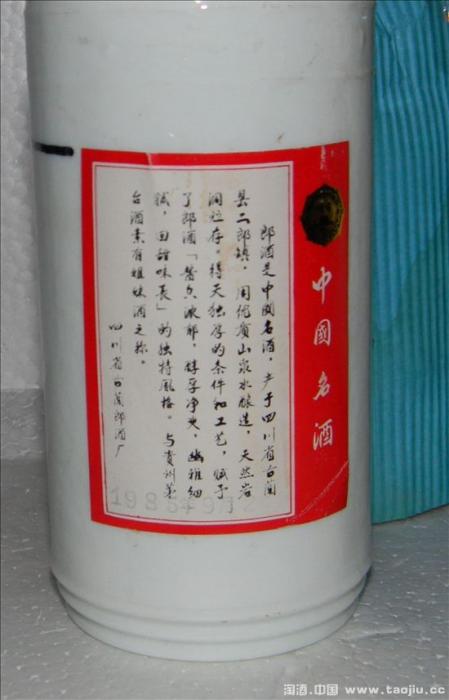 中國名酒
郎酒是中國名酒,产于四川省古蔺
县二郎镇,用优质山泉水酿造,天然岩
洞贮存。得天独厚的条件和工艺,赋予
了郎酒「酱香浓郁,醇厚净爽,幽雅细
腻,回甜味长」的独特风格。与贵州茅
台酒素有姐妹酒之称。
四川省古蔺郎酒厂
淘酒.中国 www.taojiu.cc